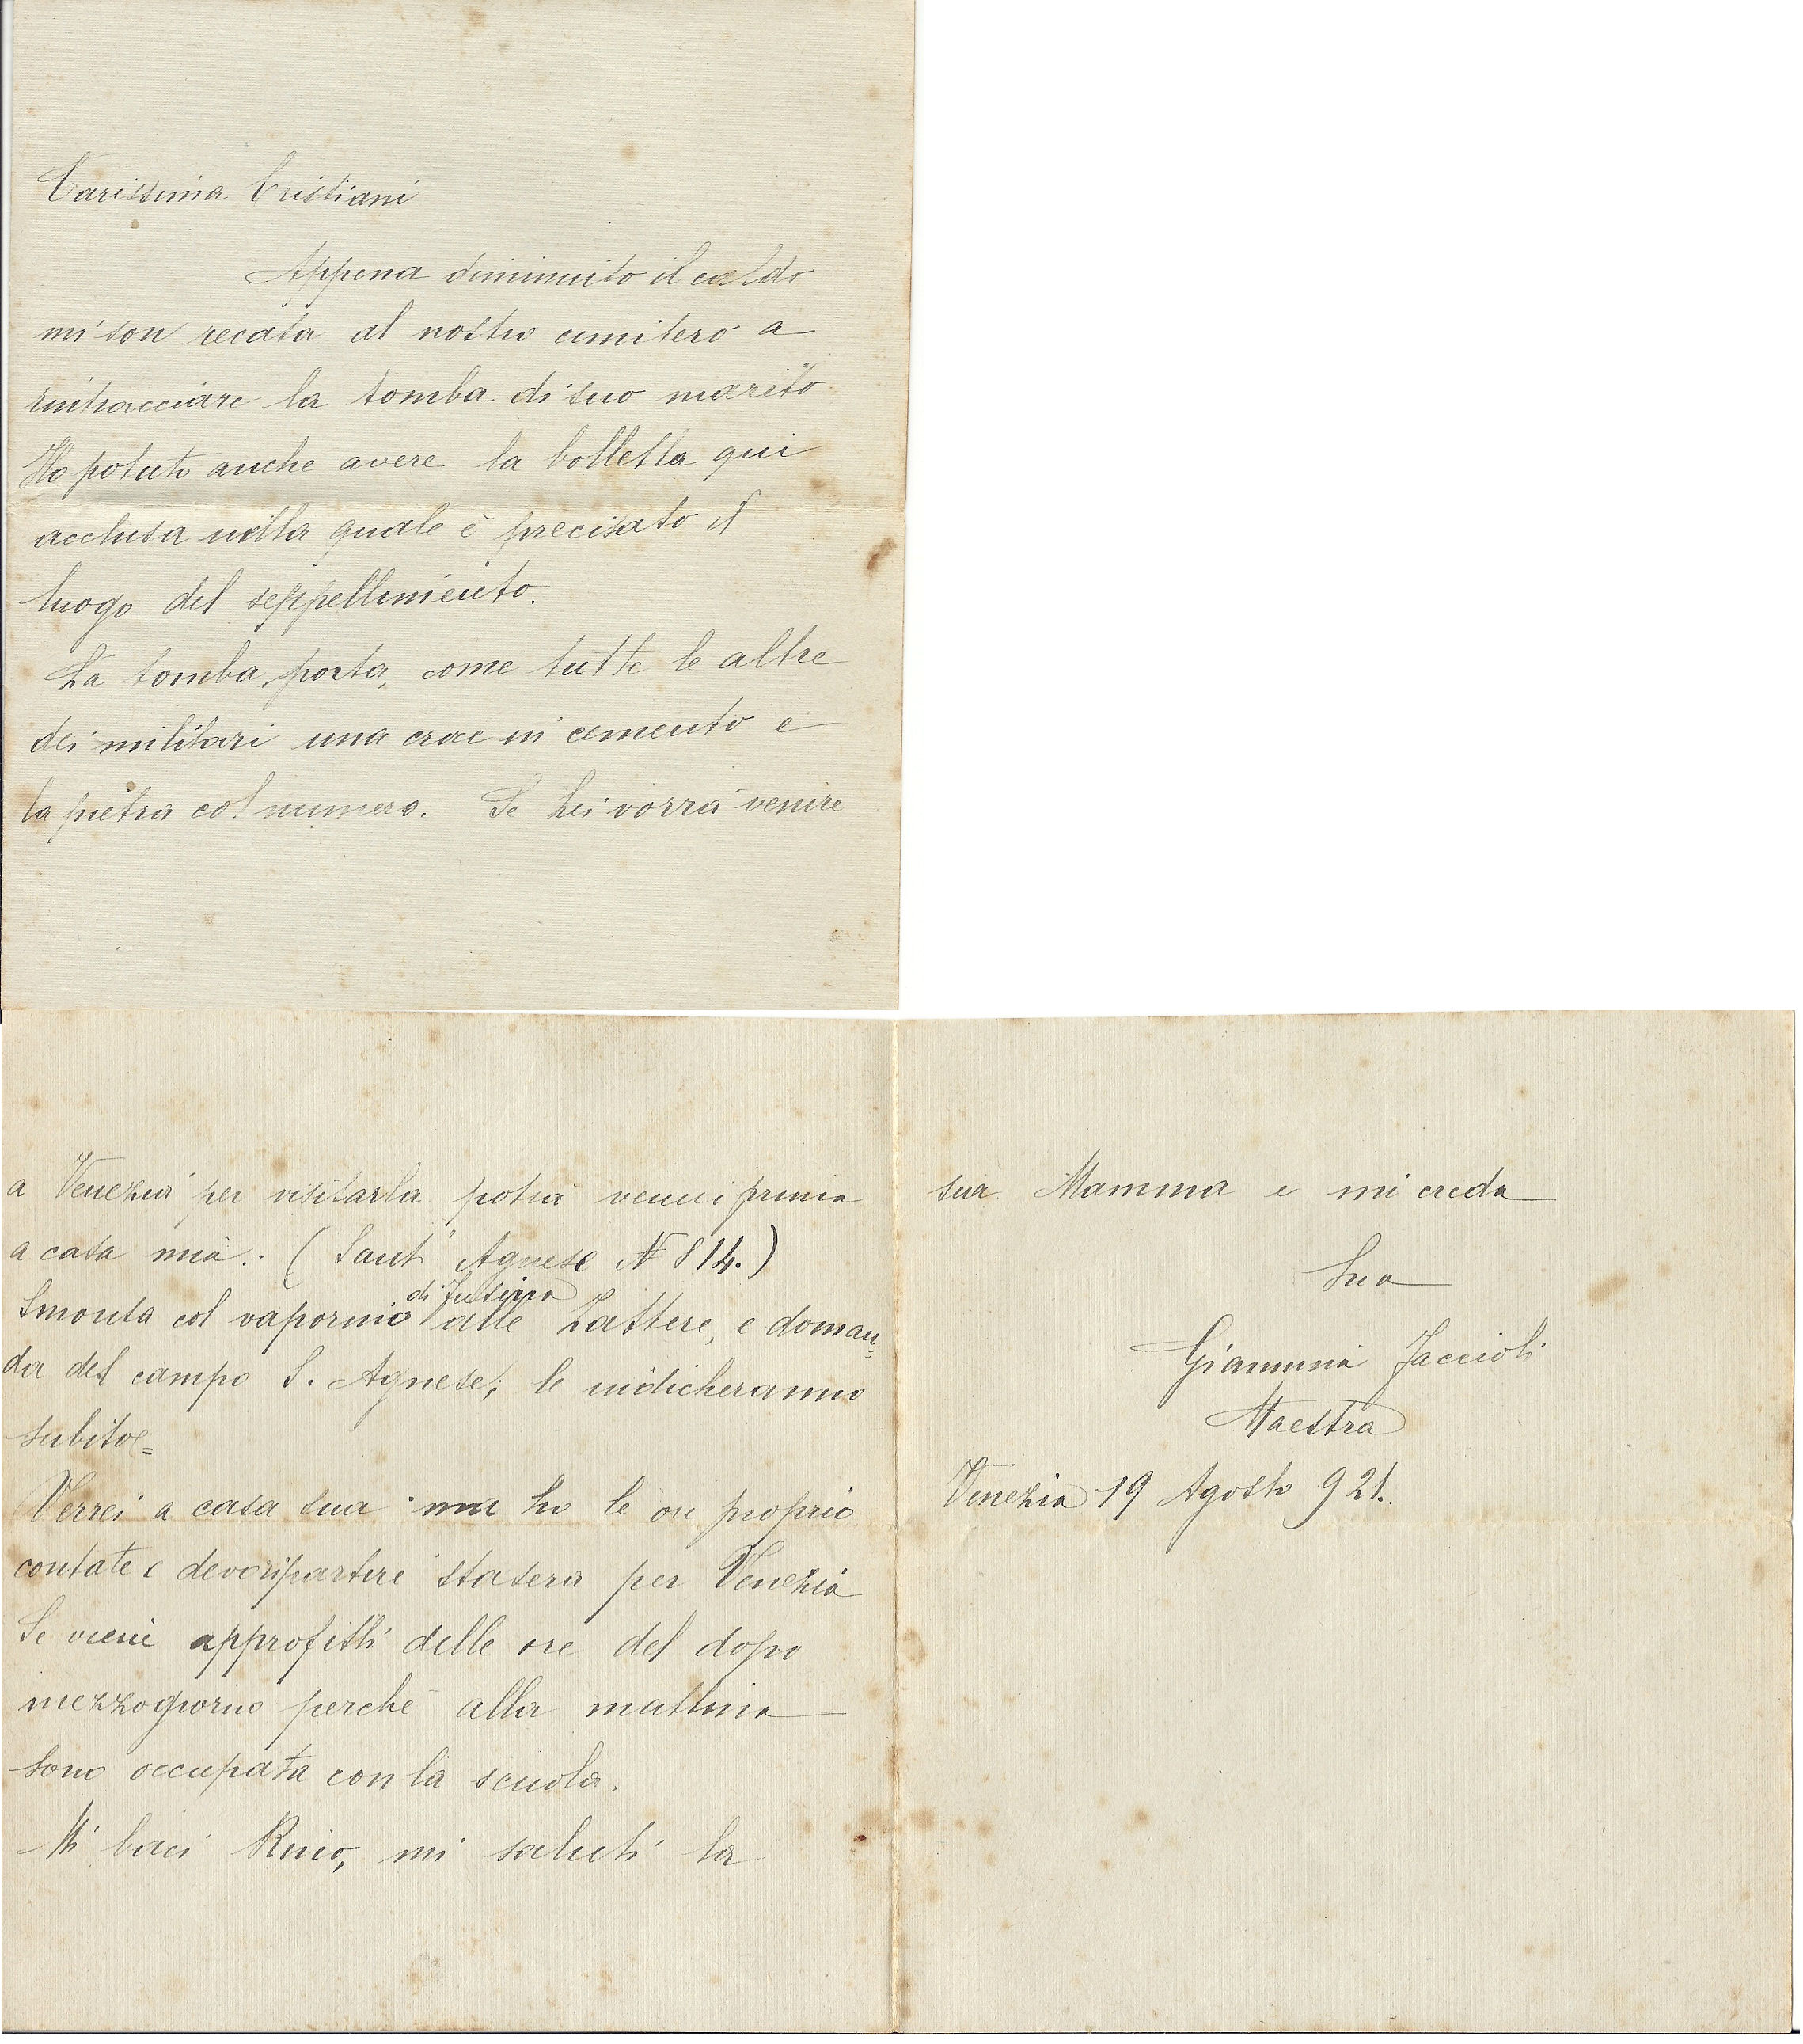 Carissima Cristiani
Appena diminuito il caldo
mi son recata al nostro cimitero a
rintracciare la tomba di suo marito
Ho potuto anche avere la bolletta qui
acclusa nella quale è precisato il
luogo del seppellimento.
La tomba porta, come tutte le altre
dei militari una croce in cemento e
la pietra col numero. Se Lei vorrà venire
a Venezia per visitarla potrà venir prima
a casa mia. (Sant' Agnese N 814.)
di Fusina
Smonta col vaporino alle Zattere, e doman=
da del campo S. Agnese; le indicheranno
subito=
Verrei a casa sua ma ho le ore proprio
contate e devo ripartire stasera per Venezia
Se viene approfitti delle ore del dopo
mezzogiorno perchè alla mattina
sono occupata con la scuola.
Mi baci Rino, mi saluti la
sua Mamma e mi creda
Sua
Giannina Faccioli
Maestra
Venezia 19 Agosto 921.